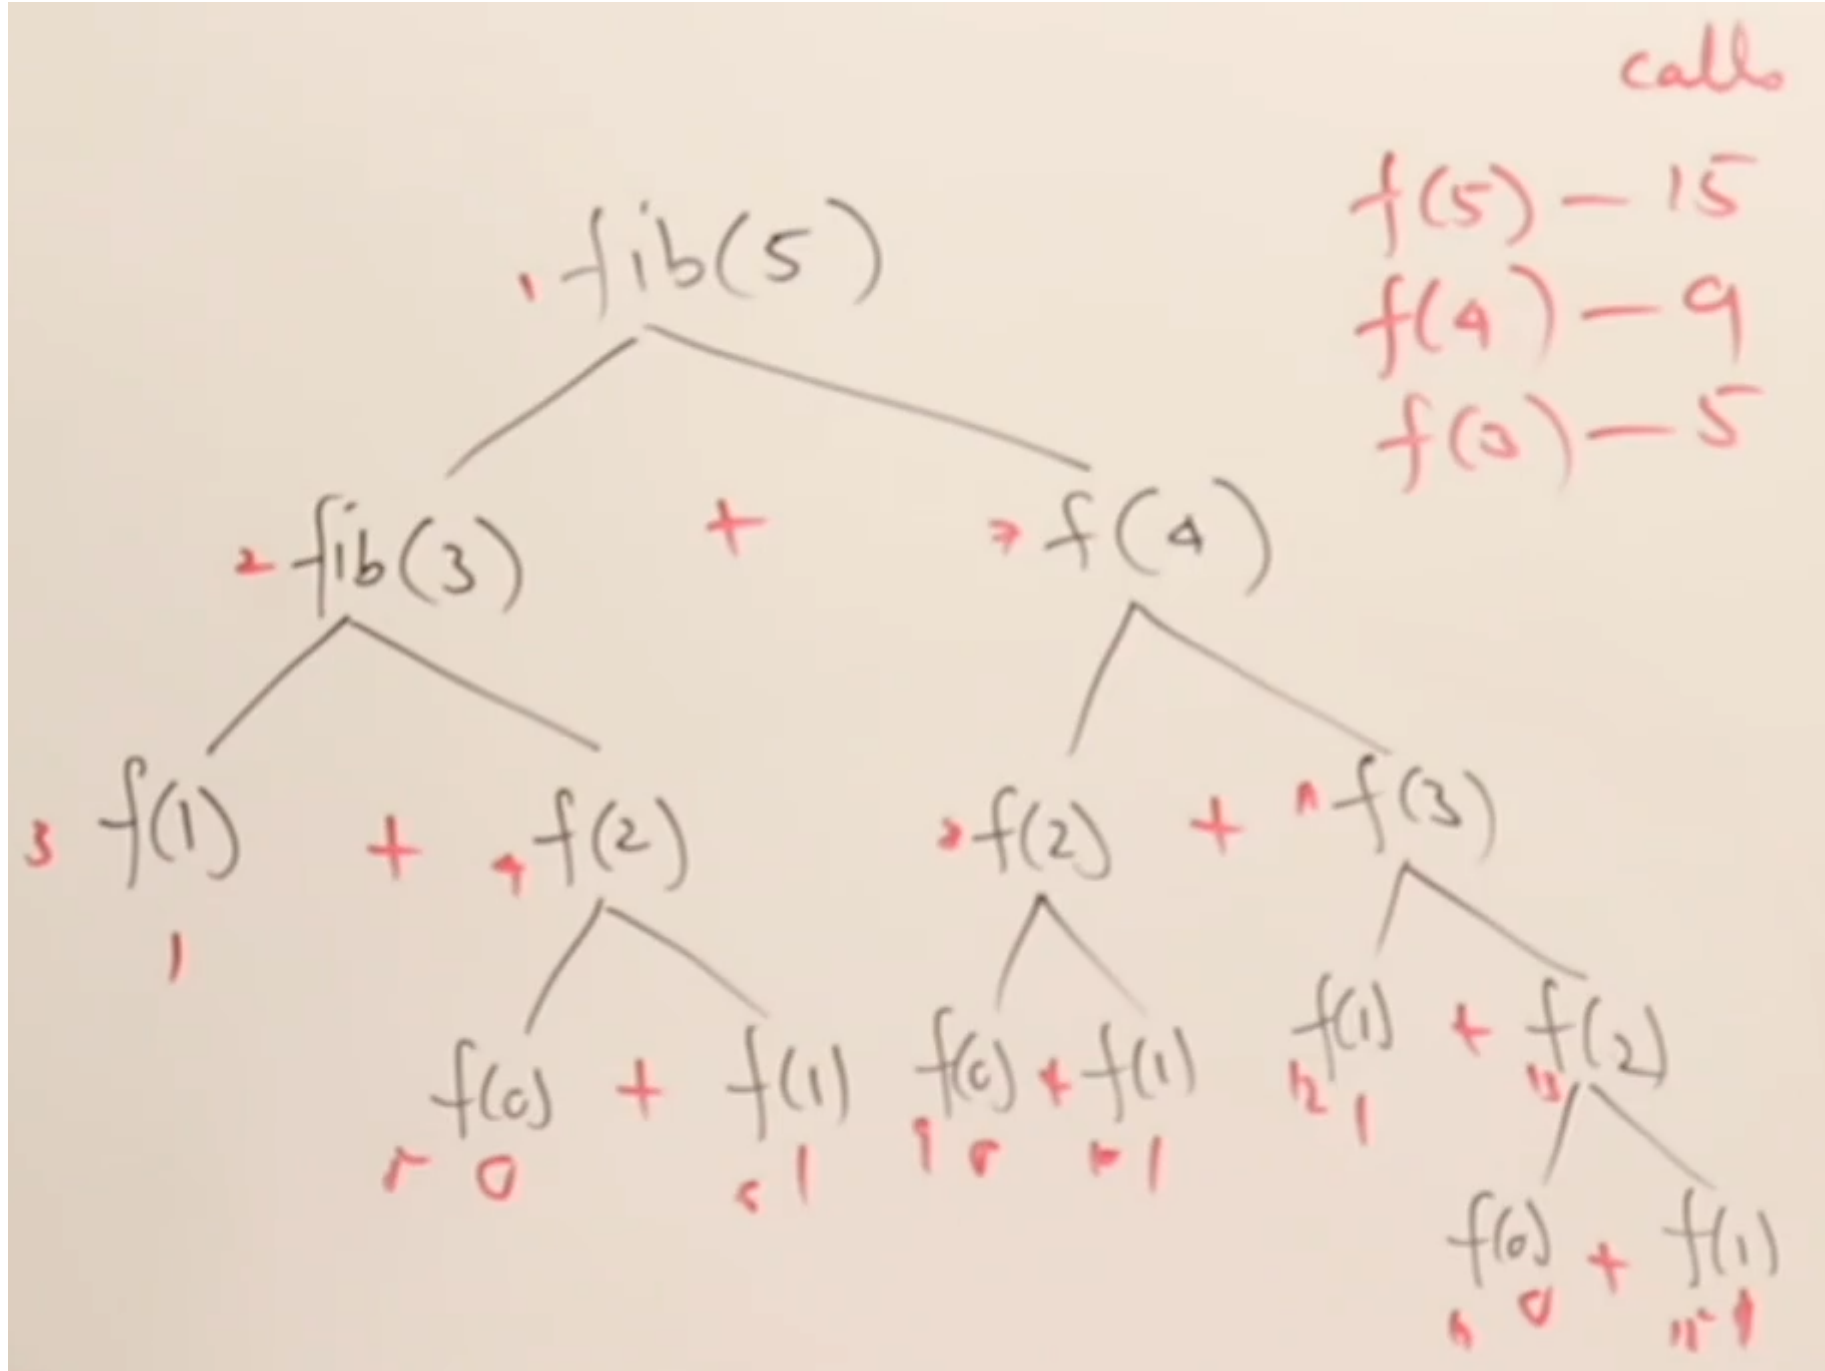 calls
f(5) - 15
f(4) - 9
f(3) - 5
1 fib(5)
2 fib(3) + 7 f(4)
3 f(1) + 4 f(2) f(2) + f(3)
1
f(0) + f(1) f(0) + f(1) f(1) + f(2)
5 0 6 1 9 0 10 1 12 1 13
f(0) + f(1)
0 15 1